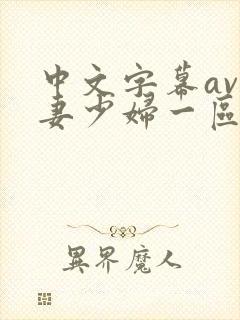 中文字幕av
妻少婦一區
異界魔人